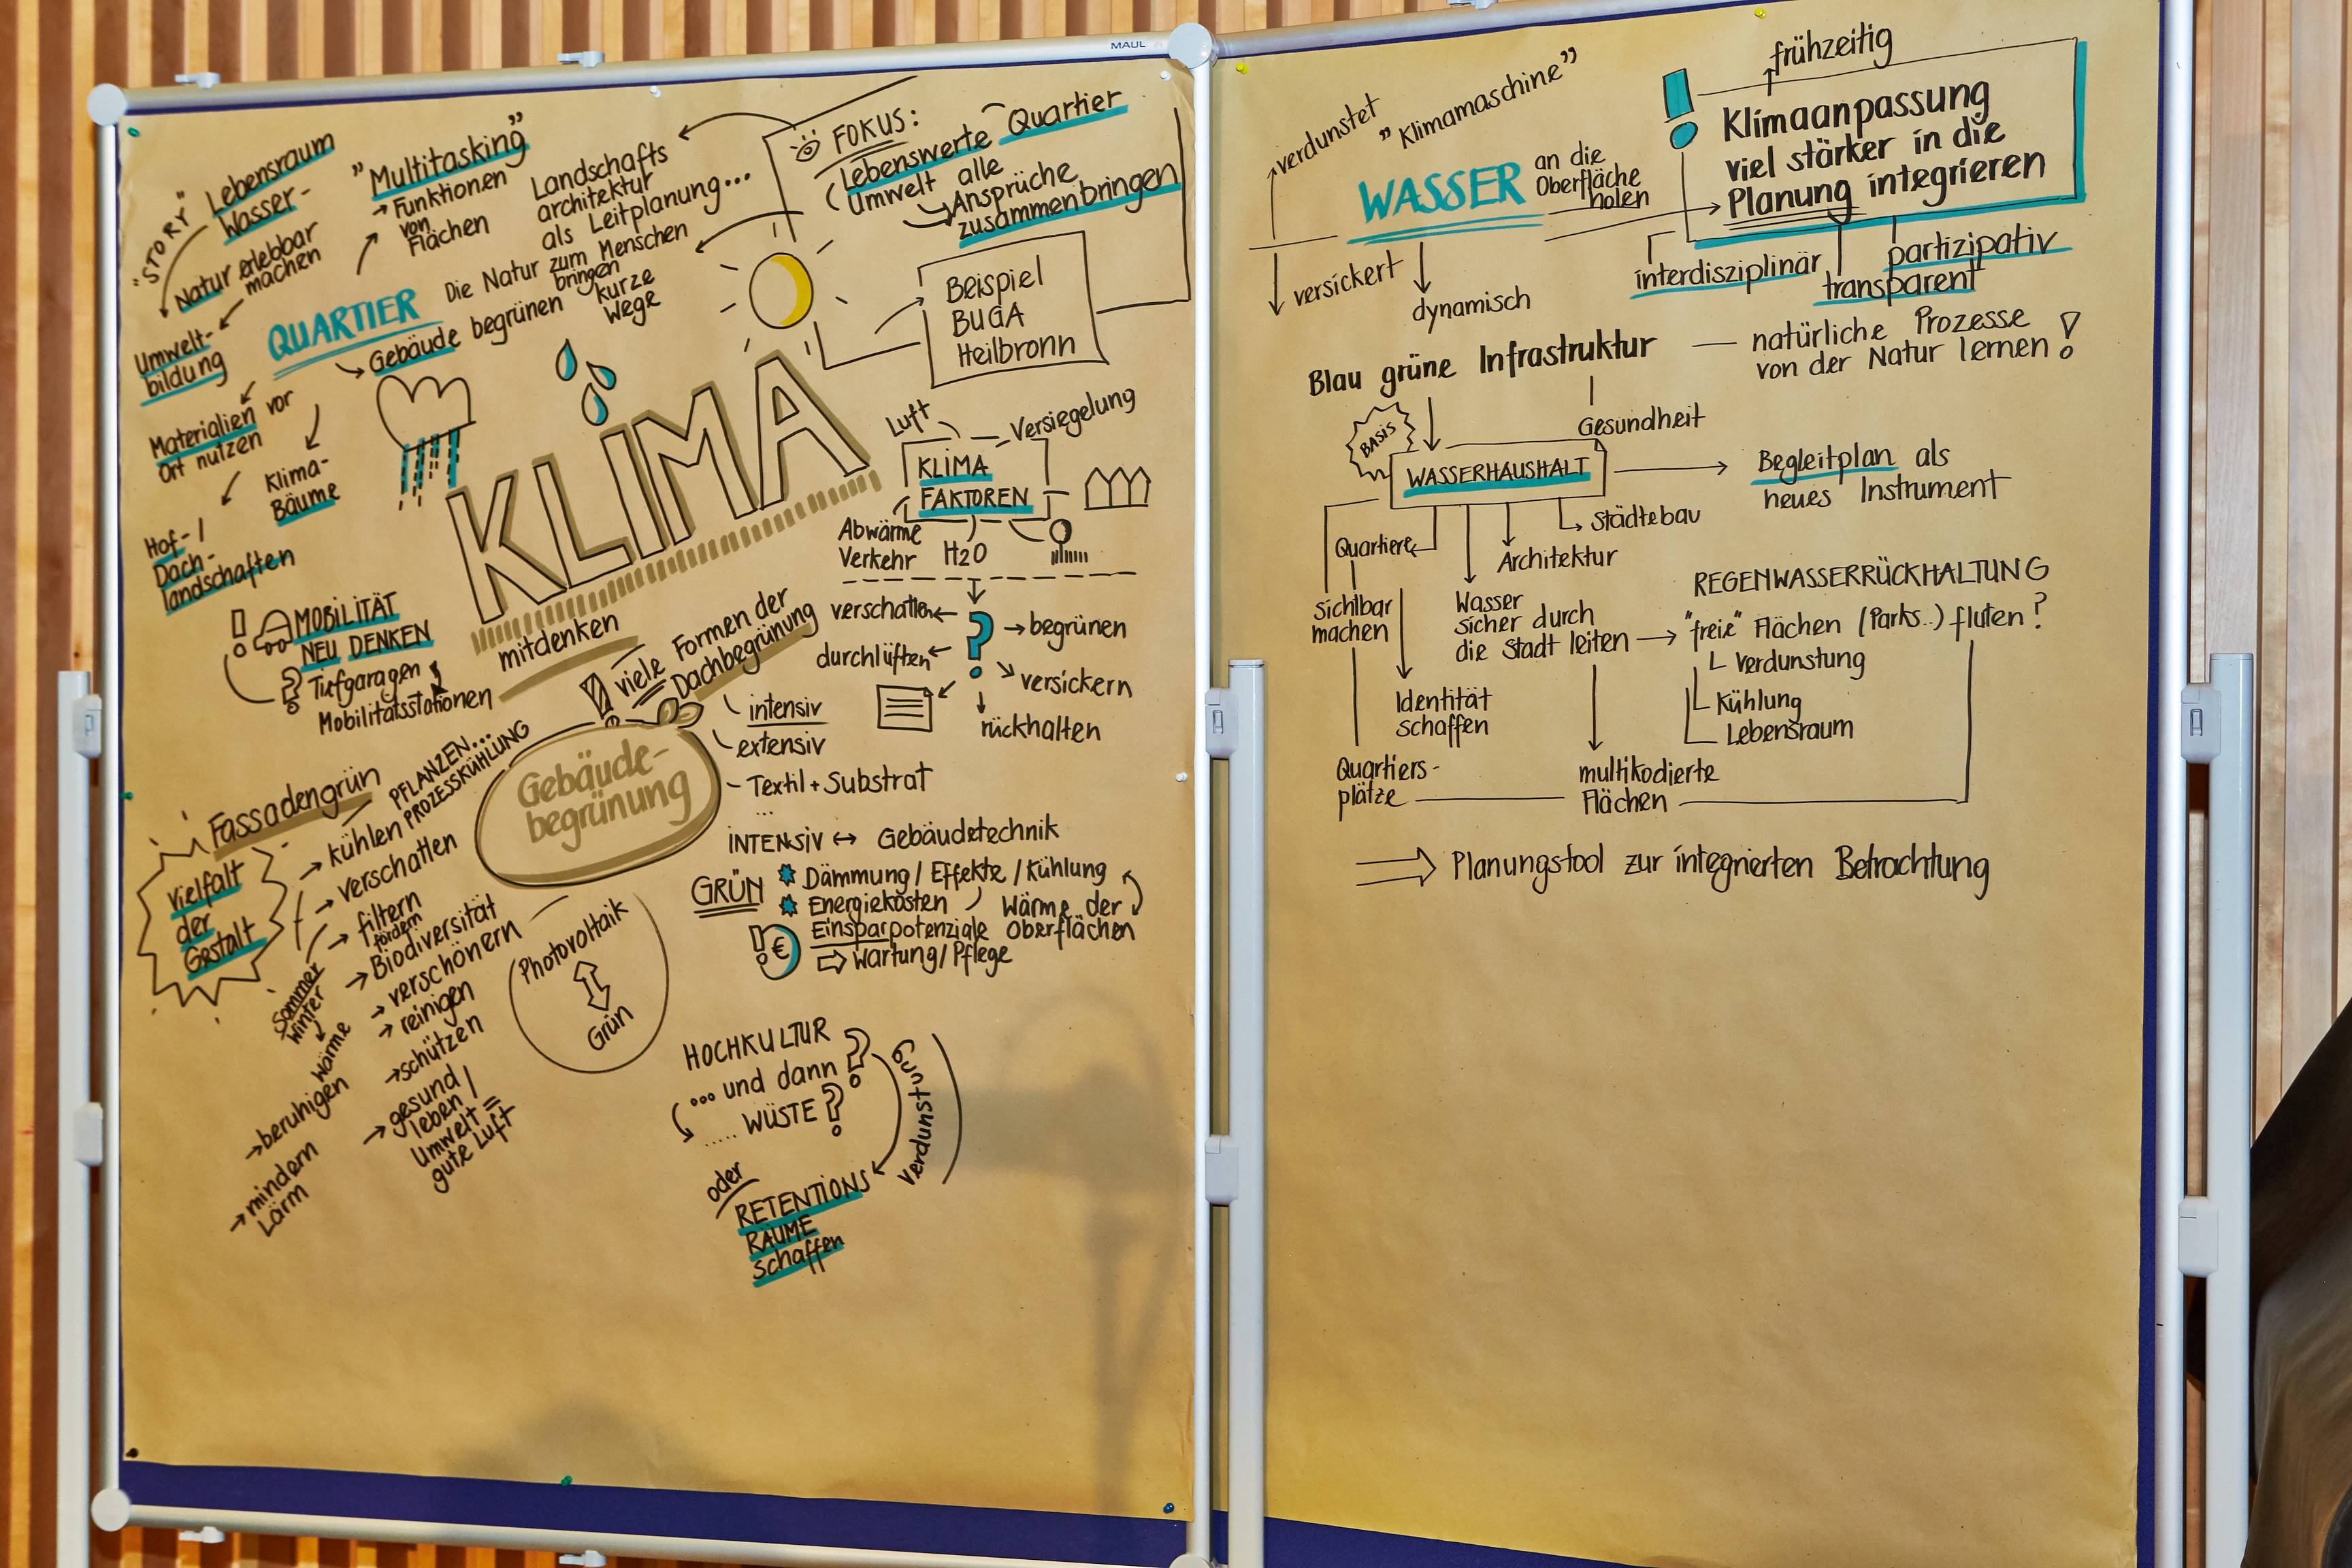 MAUL
"STORY"
Lebensraum
Wasser-
Natur erlebbar
machen
Umwelt-
bildung
Materialien vor
Ort nutzen
Klima-
Bäume
Hof-/
Dach-
landschaften
"Multitasking"
→ Funktionen
von
Flächen
Landschafts
architektur
als Leitplanung...
Die Natur zum Menschen
bringen
QUARTIER
Gebäude begrünen
kurze
Wege
FOKUS:
Lebenswerte Quartier
Umwelt alle
Ansprüche
zusammenbringen
Beispiel
BUGA
Heilbronn
KLIMA
mitdenken
Luft
Versiegelung
KLIMA
FAKTOREN
Abwärme
Verkehr
H2O
verschatten
?
→ begrünen
durchlüften
versickern
rückhalten
! MOBILITÄT
NEU DENKEN
? Tiefgaragen
Mobilitätsstationen
viele Formen der
Dachbegrünung
intensiv
extensiv
- Textil + Substrat
...
Gebäude-
begrünung
INTENSIV ↔ Gebäudetechnik
GRÜN
Dämmung / Effekte / Kühlung
Energiekosten
Wärme der
Oberflächen
Einsparpotenziale
! €
⇨ Wartung/Pflege
Fassadengrün
PFLANZEN...
PROZESSKÜHLUNG
Vielfalt
der
Gestalt
→ kühlen
→ verschatten
→ filtern
fördern
→ Biodiversität
→ verschönern
→ reinigen
→ schützen
→ gesund
leben /
Umwelt =
gute Luft
Sommer
Winter
Wärme
→ beruhigen
→ mindern
Lärm
Photovoltaik
Grün
HOCHKULTUR
... und dann ?
..... WÜSTE ?
Verdunstung
oder
RETENTIONS
RÄUME
schaffen
verdunstet
"Klimamaschine"
WASSER
an die
Oberfläche
holen
versickert
dynamisch
!
frühzeitig
Klimaanpassung
viel stärker in die
Planung integrieren
interdisziplinär
transparent
partizipativ
Blau grüne Infrastruktur
natürliche Prozesse
von der Natur lernen !
Gesundheit
BASIS
WASSERHAUSHALT
Begleitplan als
neues Instrument
Quartiere
Städtebau
Architektur
sichtbar
machen
Identität
schaffen
Quartiers-
plätze
Wasser
sicher durch
die Stadt leiten
REGENWASSERRÜCKHALTUNG
"freie" Flächen (Parks..) fluten ?
Verdunstung
Kühlung
Lebensraum
multikodierte
Flächen
⇒ Planungstool zur integrierten Betrachtung